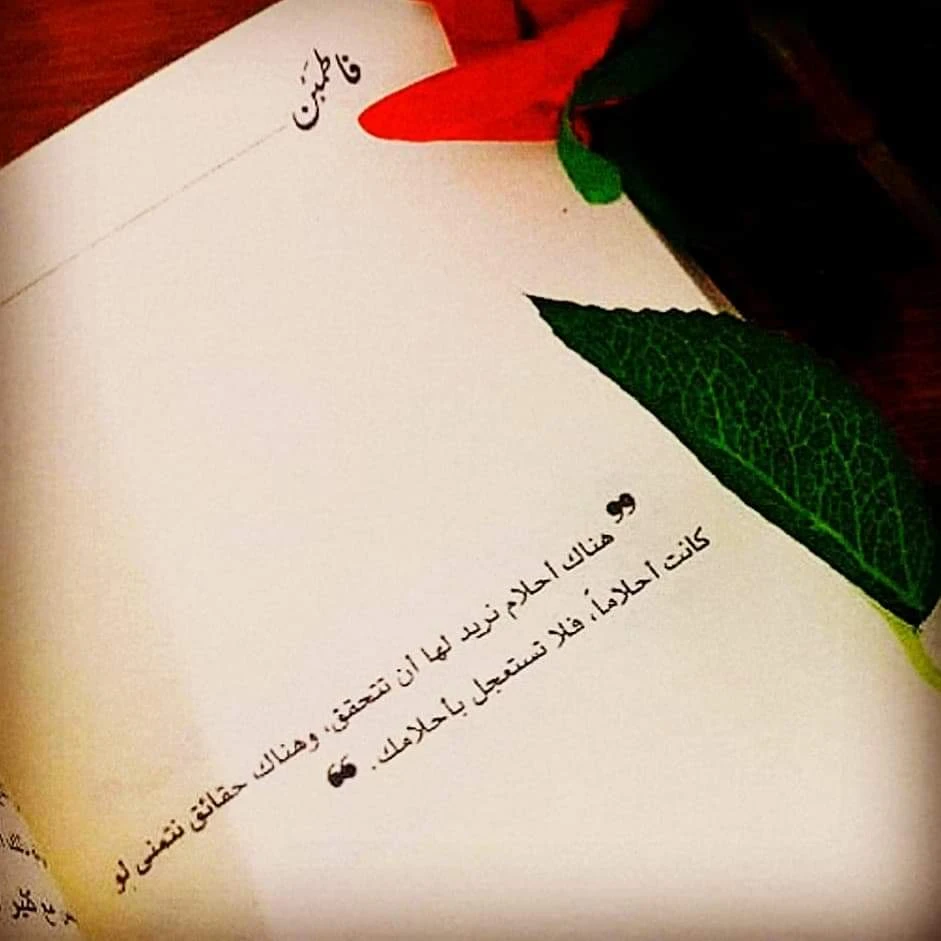 فاطمَبَن
❞هناك أحلام نريد لها أن تتحقق، وهناك حقائق نتمنى لو
كانت أحلاماً، فلا تستعجل بأحلامك. ❝